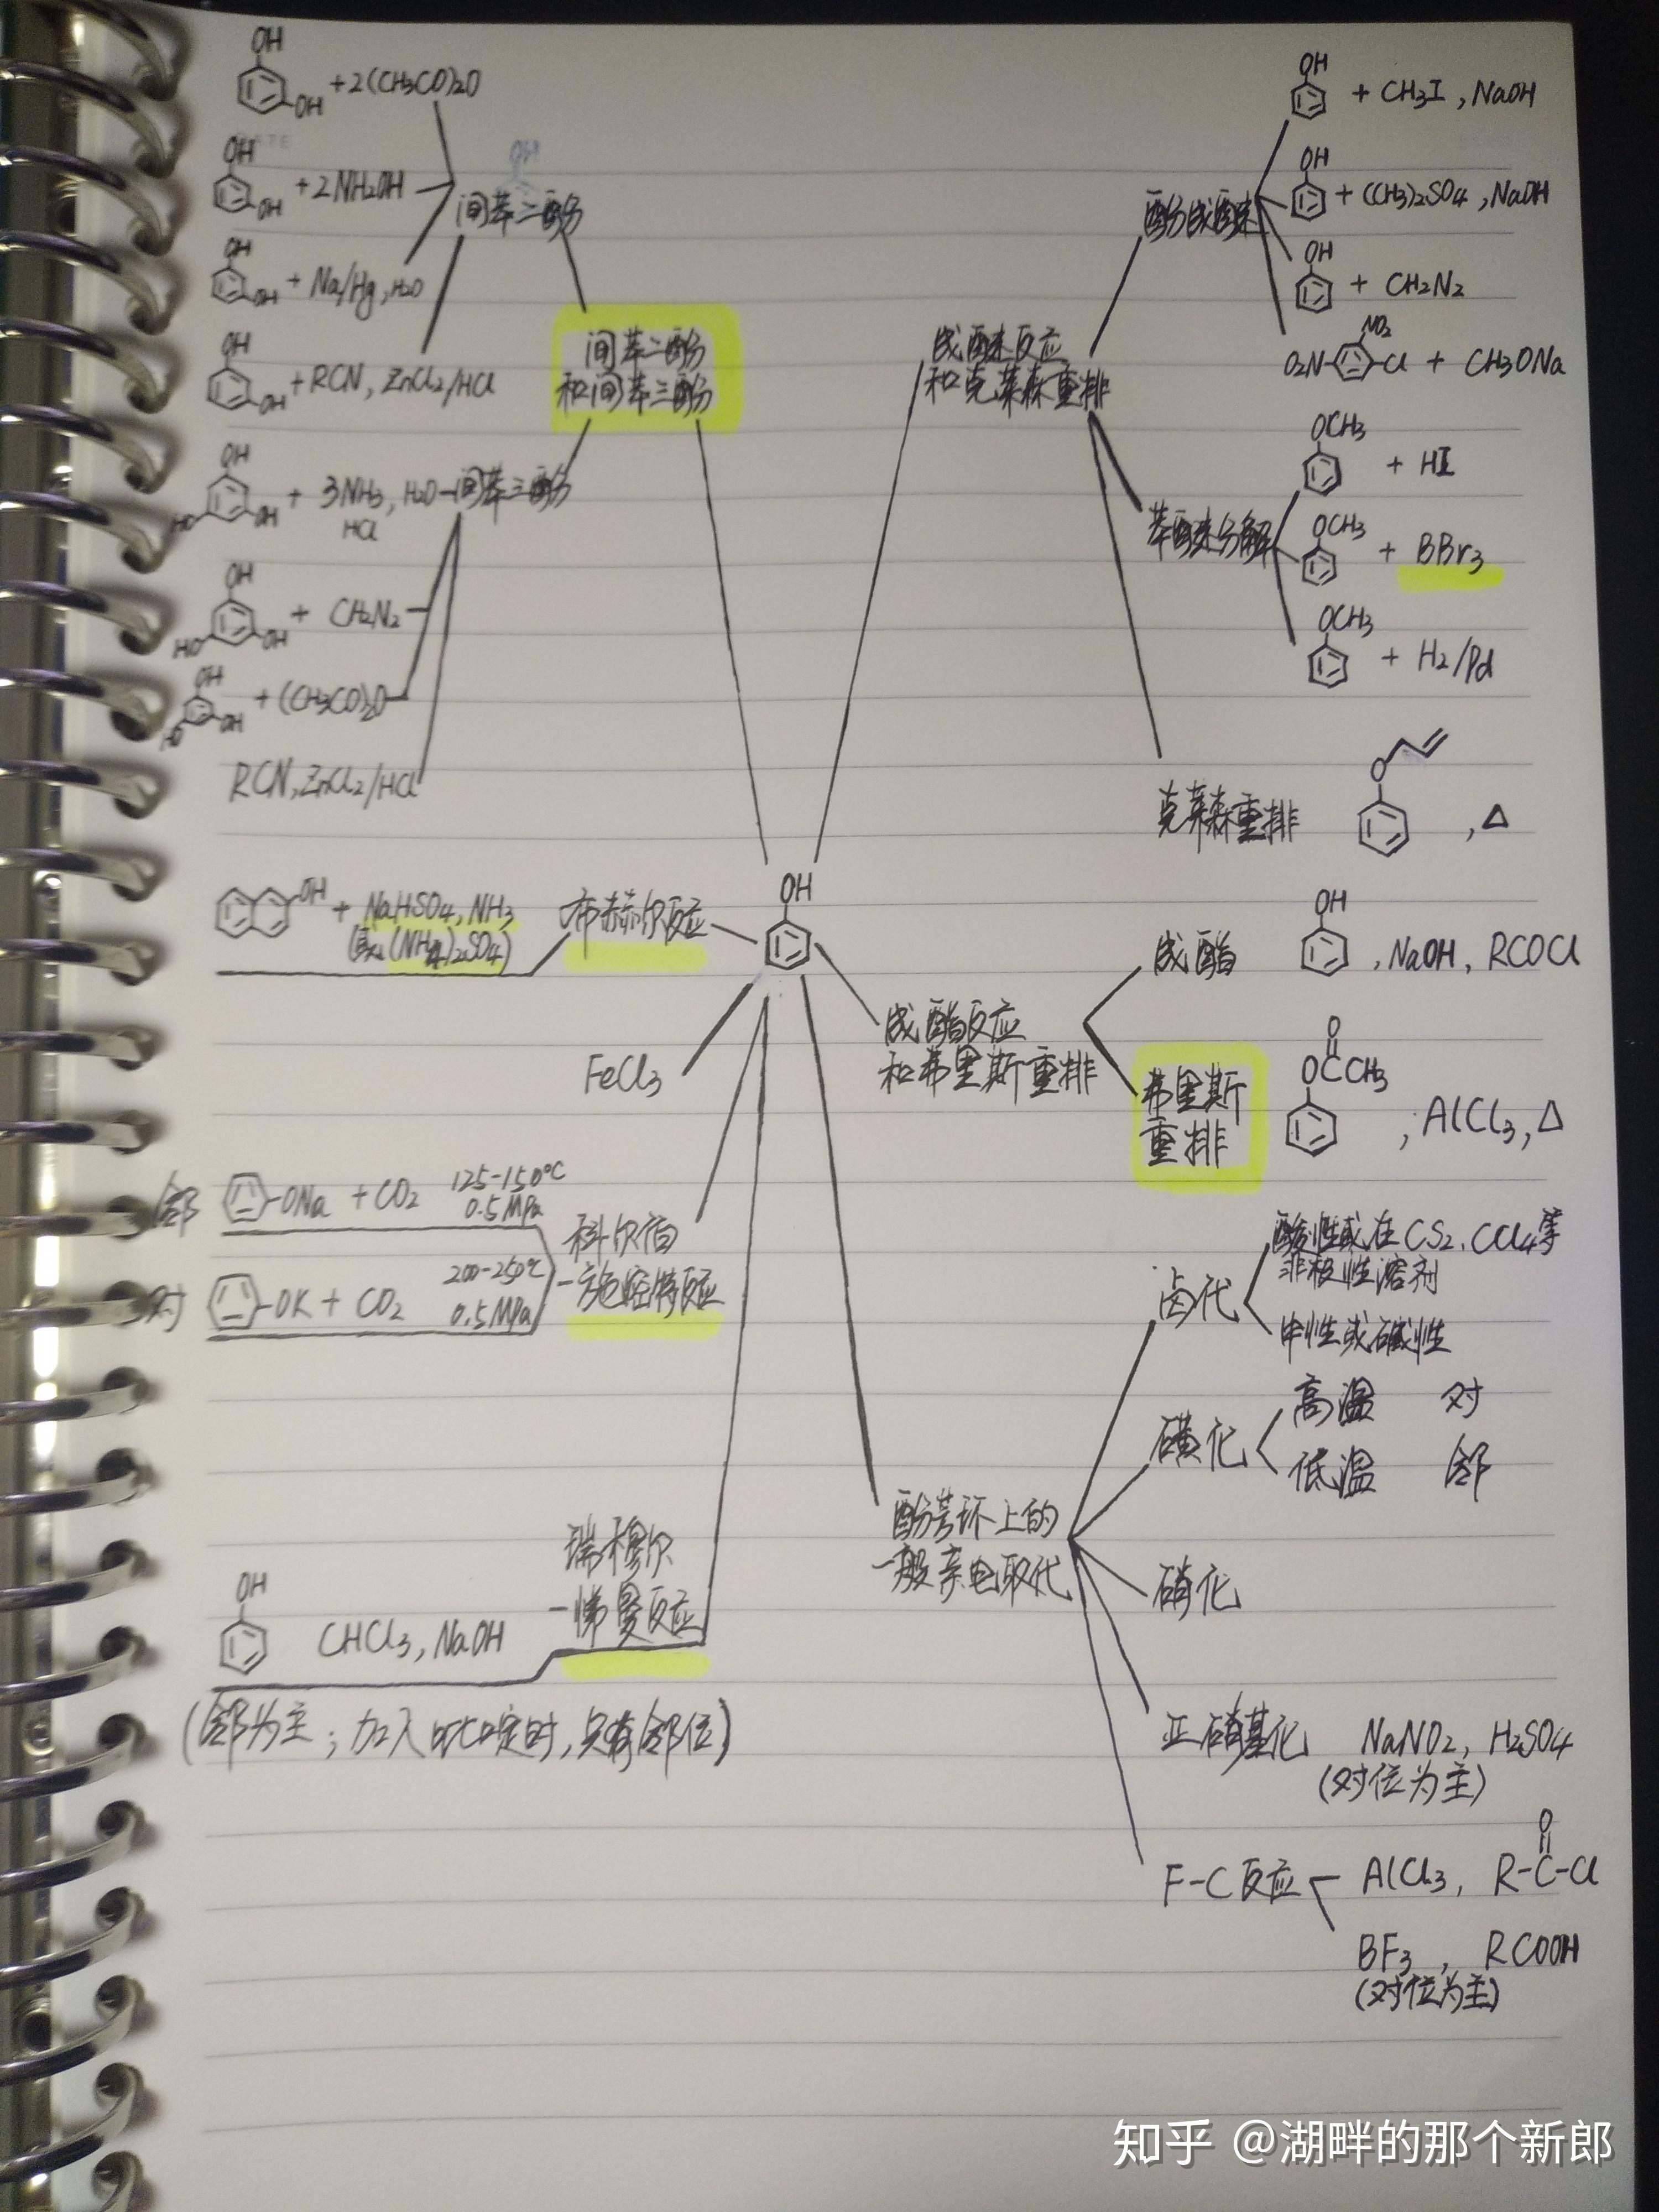 OH
OH
+2(CH3CO)2O
OH
OH
+2NH2OH
OH
OH
+ Na/Hg, H2O
OH
OH
+RCN, ZnCl2/HCl
间苯二酚
间苯二酚
和间苯三酚
OH
HO
OH
+ 3NH3, H2O
HCl
间苯三酚
OH
HO
OH
+ CH2N2
OH
HO
OH
+ (CH3CO)2O
RCN, ZnCl2/HCl
OH
+ NaHSO4, NH3
(NH4)2SO4)
布赫尔反应
OH
FeCl3
邻
-ONa + CO2
125-150°C
0.5MPa
对
-OK + CO2
200-250°C
0.5MPa
科尔伯
-施密特反应
OH
CHCl3, NaOH
瑞穆尔
-悌曼反应
(邻为主;加入吡啶时,只有邻位)
成醚反应
和克莱森重排
酚成醚
OH
+ CH3I, NaOH
OH
+ (CH3)2SO4, NaOH
OH
+ CH2N2
NO2
O2N-
-Cl + CH3ONa
苯醚分解
OCH3
+ HI
OCH3
+ BBr3
OCH3
+ H2/Pd
克莱森重排
O
, △
成酯反应
和弗里斯重排
成酯
OH
, NaOH, RCOCl
弗里斯
重排
O
OCCH3
, AlCl3, △
酚芳环上的
一般亲电取代
卤代
酸性或在CS2、CCl4等
非极性溶剂
中性或碱性
磺化
高温 对
低温 邻
硝化
亚硝基化 NaNO2, H2SO4
(对位为主)
F-C反应
AlCl3, R-C-Cl
O
BF3, RCOOH
(对位为主)
知乎 @湖畔的那个新郎